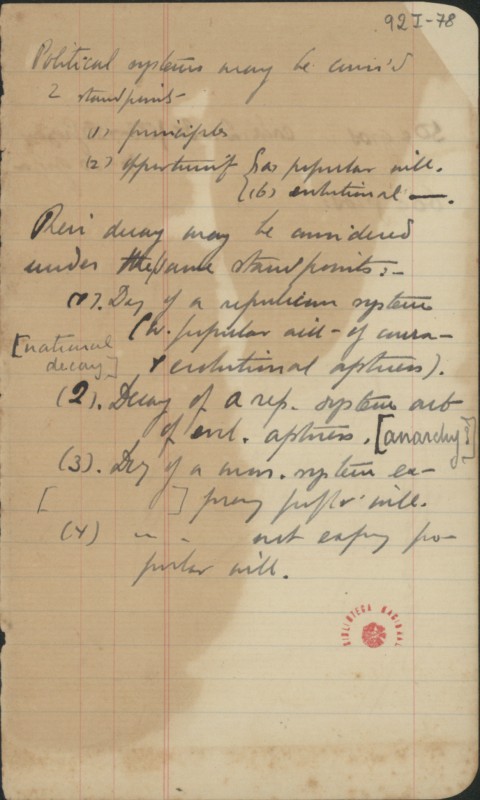 92I-78
Political systems may be consid
2 standpoints-
(1) principles
(2) opportunity {(a) popular will.
{(b) evolutional —.
Their decay may be considered
under the same standpoints:-
(1). Decay of a republican system
(w. popular will - of course -
[national decay] & evolutional aptness).
(2). Decay of a rep. system out
of evol. aptness. [anarchy?]
(3). Decay of a mon. system ex-
[ ] pressing popular will.
(4) " " not expressing po-
pular will.
BIBLIOTECA NACIONAL